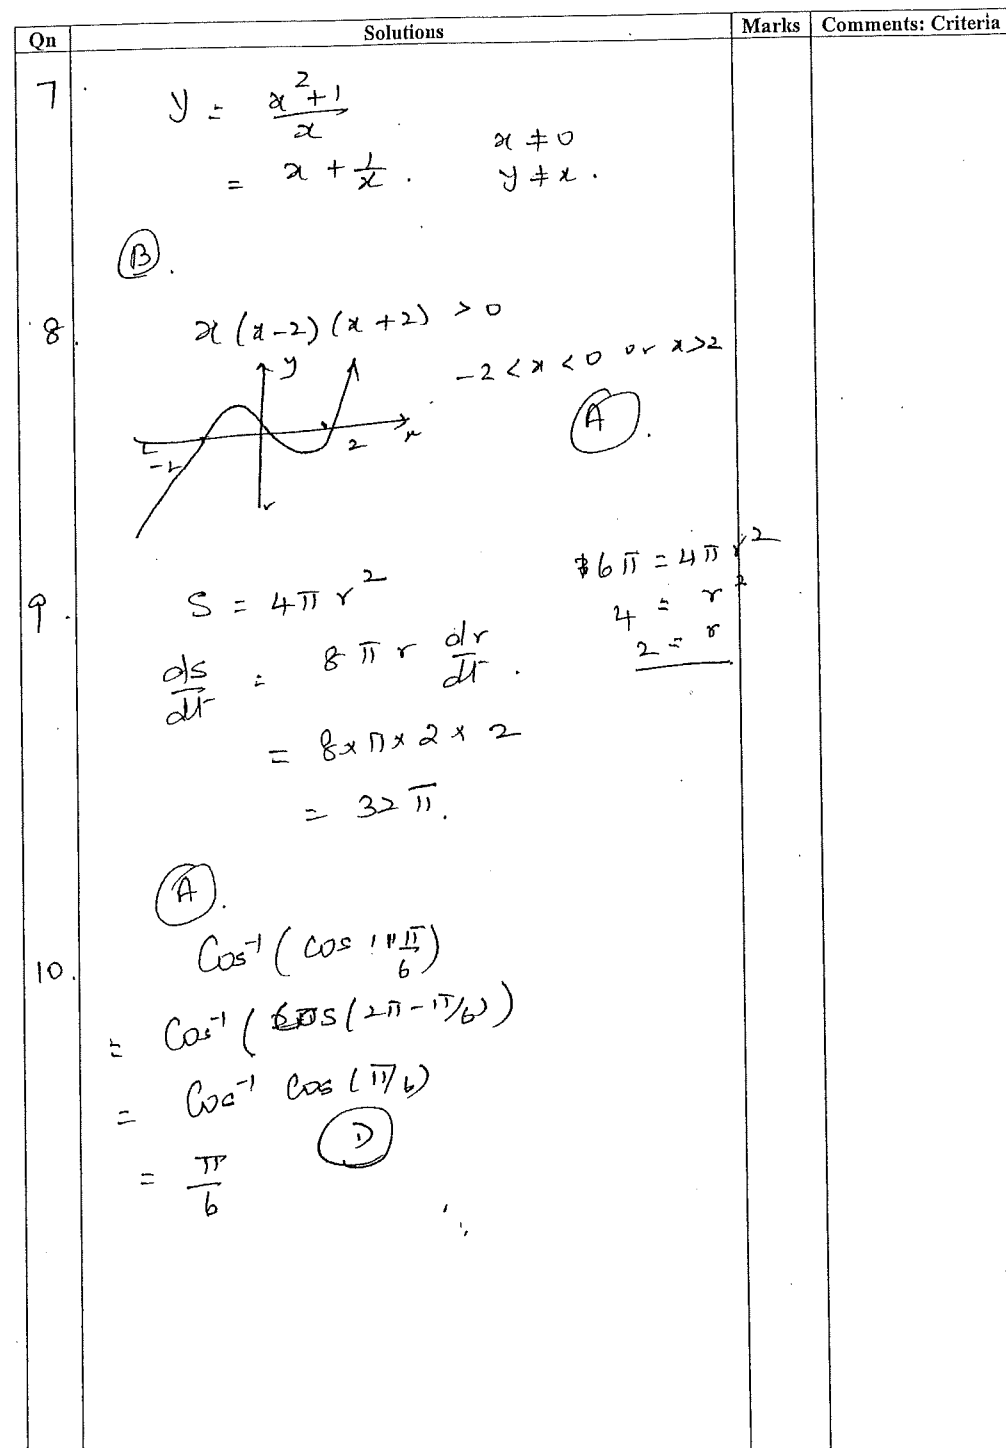 Qn Solutions Marks Comments: Criteria
7 y = (x^2+1)/x
= x + 1/x . x ≠ 0
y ≠ x .
(B) .
8. x(x-2)(x+2) > 0
-2 < x < 0 or x>2
y
-2 2 x
(A) .
9. S = 4πr^2
6π = 4πr^2
4 = r^2
2 = r
ds/dt = 8πr dr/dt .
= 8×π×2×2
= 32π.
(A) .
10. Cos^-1 (cos 11π/6)
= Cos^-1 (cos(2π-π/6))
= Cos^-1 cos(π/6)
= π/6 (D)